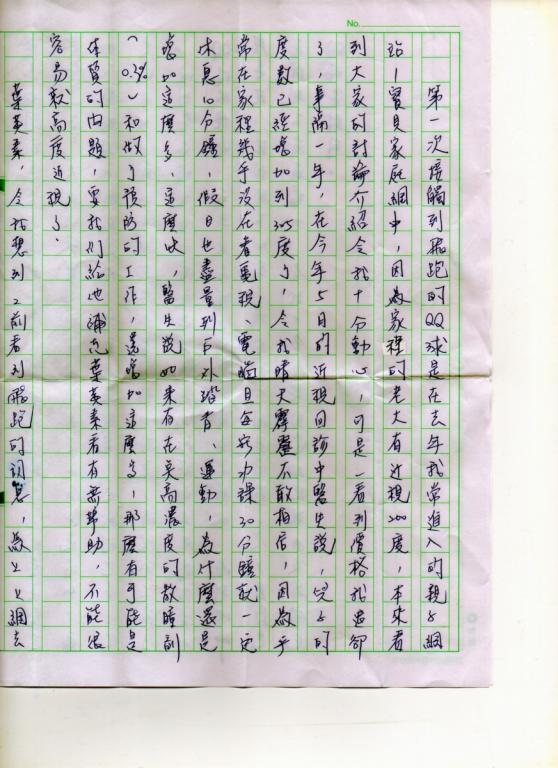 No.
第一次接觸到飛跑的QQ球是在去年我常進入的親子網
站－寶貝家庭網中，因為家裡的老大有近視200度，本來看
到大家的討論介紹令我十分動心，可是一看到價格我退卻
了，事隔一年，在今年5月的近視回診中醫生說，兒子的
度數已經增加到325度了，令我晴天霹靂不敢相信，因為平
常在家裡幾乎沒在看電視、電腦且每寫功課30分鐘就一定
休息10分鐘，假日也盡量到戶外踏青、運動，為什麼還是
增加這麼多、這麼快，醫生說如果有在點高濃度的散瞳劑
(0.3%)和做了預防的工作，還增加這麼多，那麼有可能是
体質的問題，要我們給他補充葉黃素看有無幫助，不能很
容易就高度近視了。
葉黃素，令我想到之前看到飛跑的訊息，為上網去